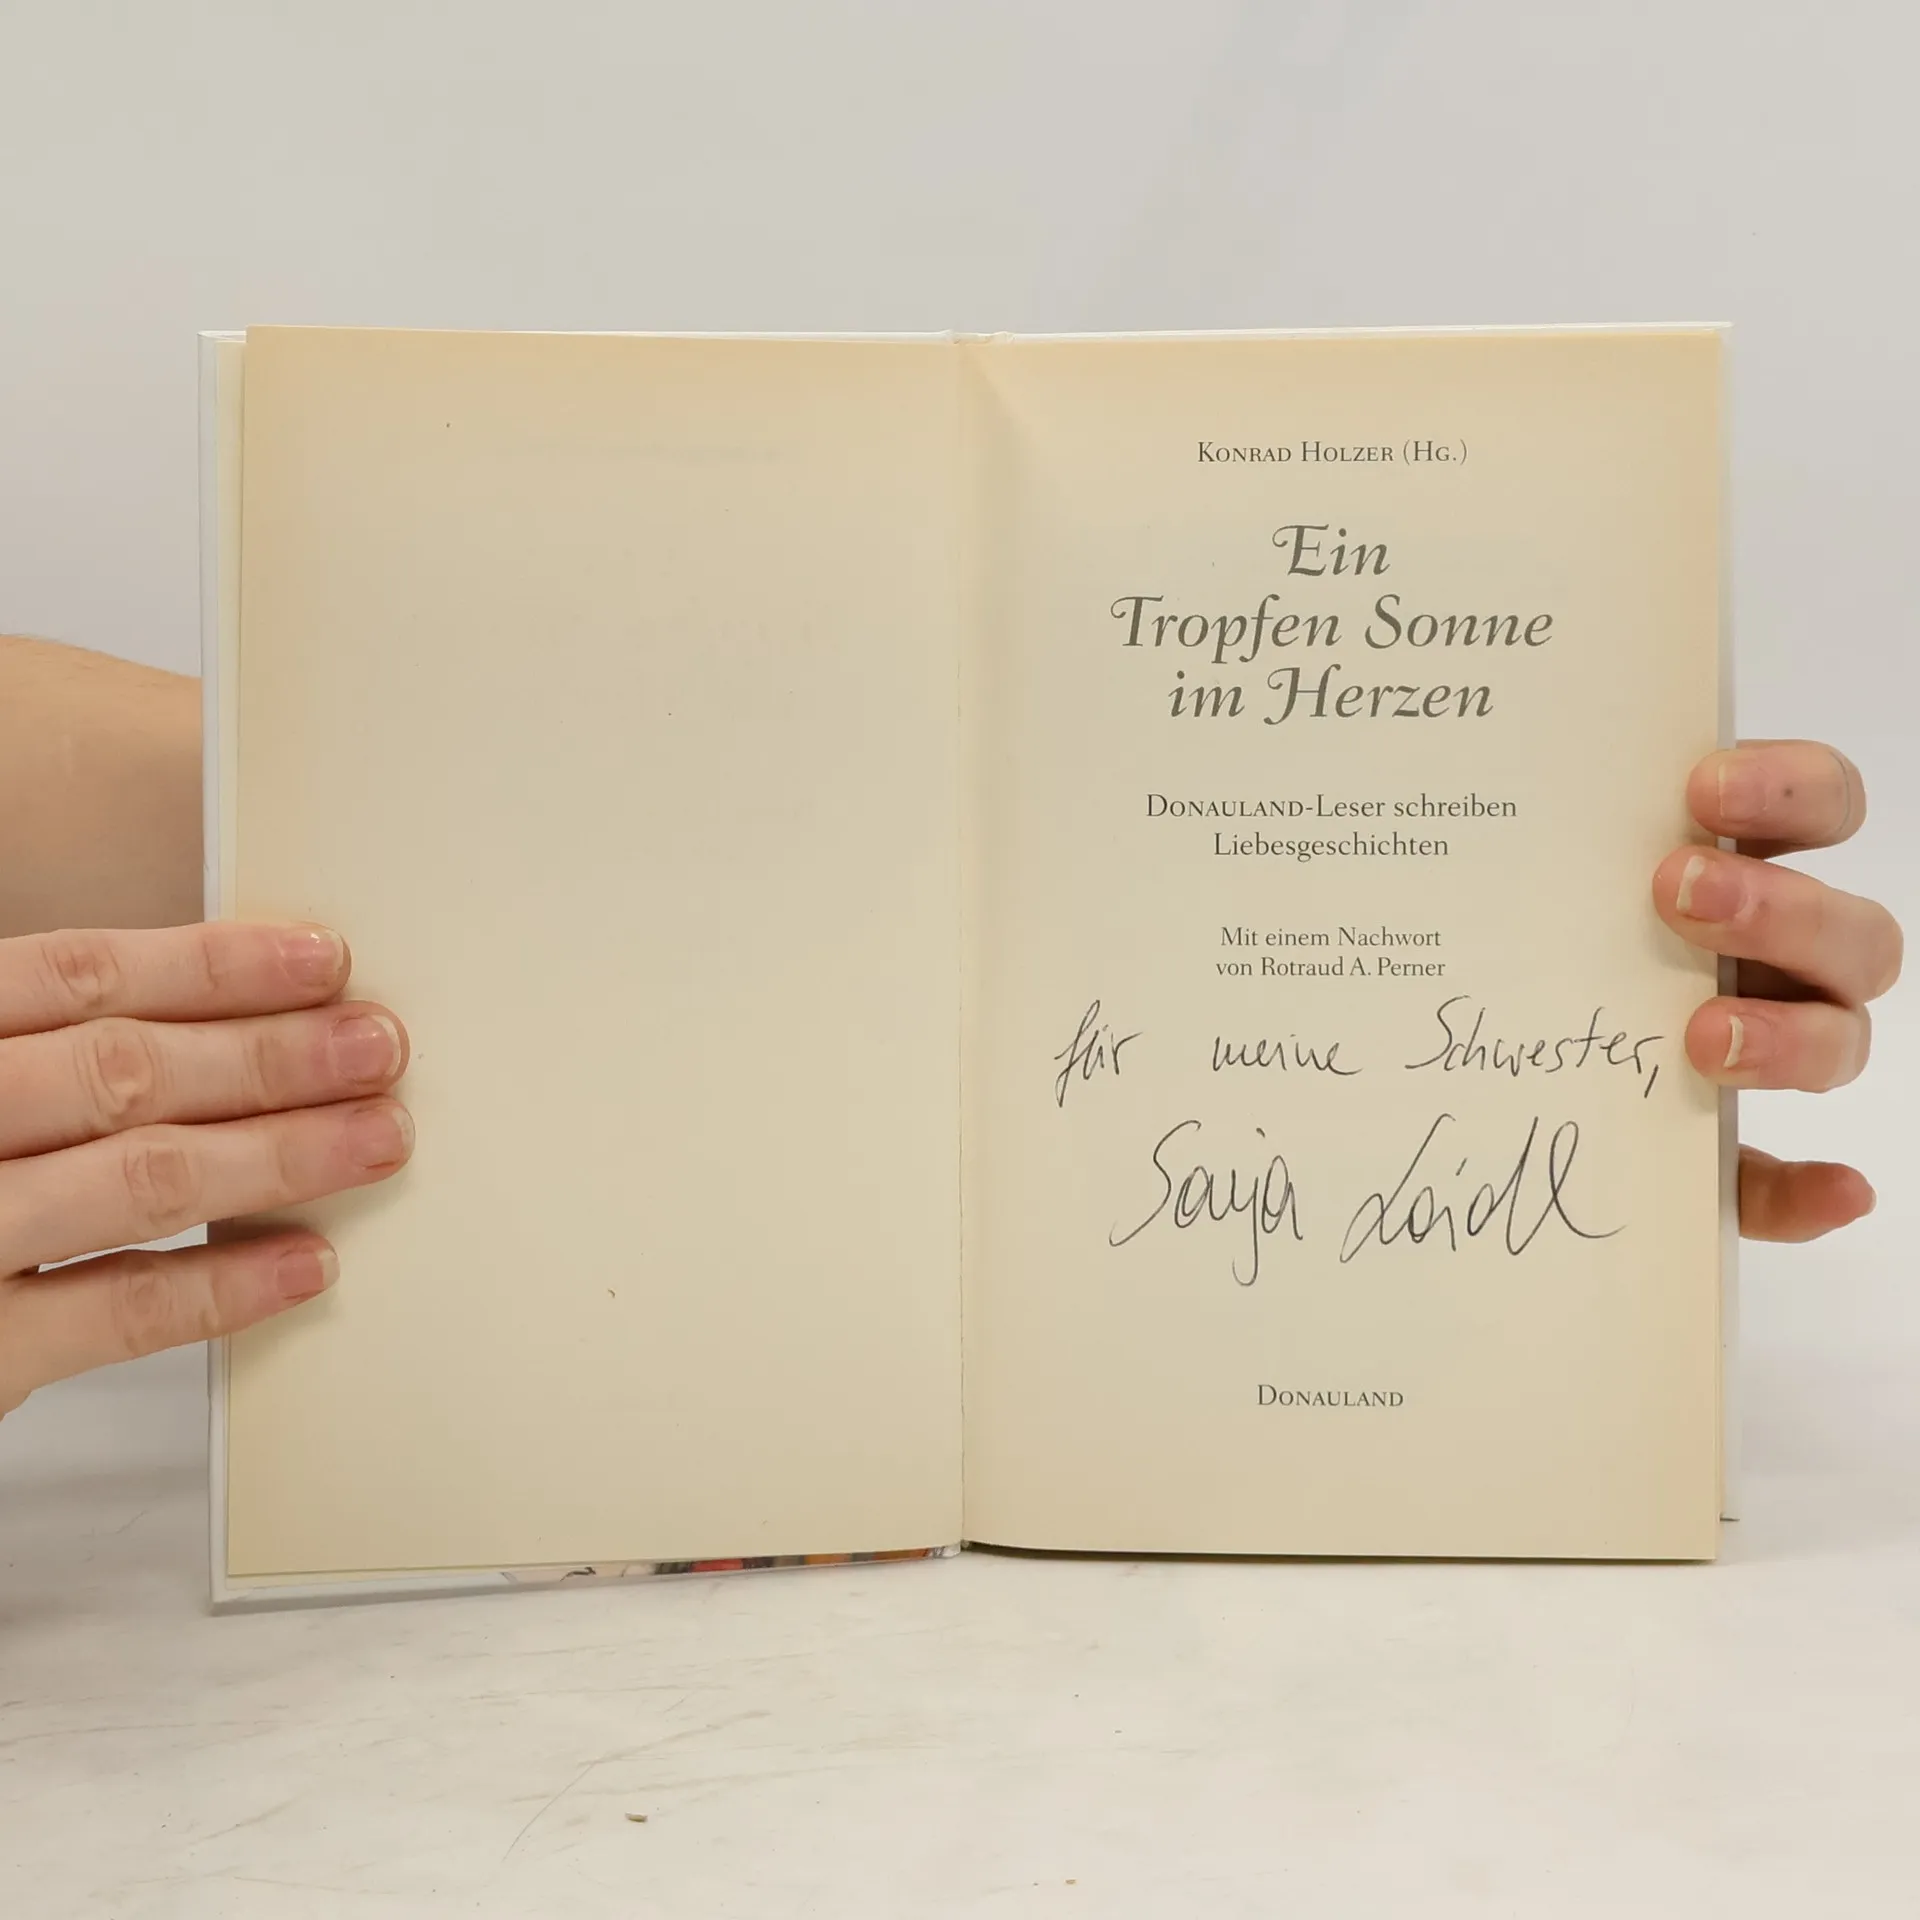 KONRAD HOLZER (HG.)
Ein
Tropfen Sonne
im Herzen
DONAULAND-Leser schreiben
Liebesgeschichten
Mit einem Nachwort
von Rotraud A. Perner
für meine Schwester,
DONAULAND